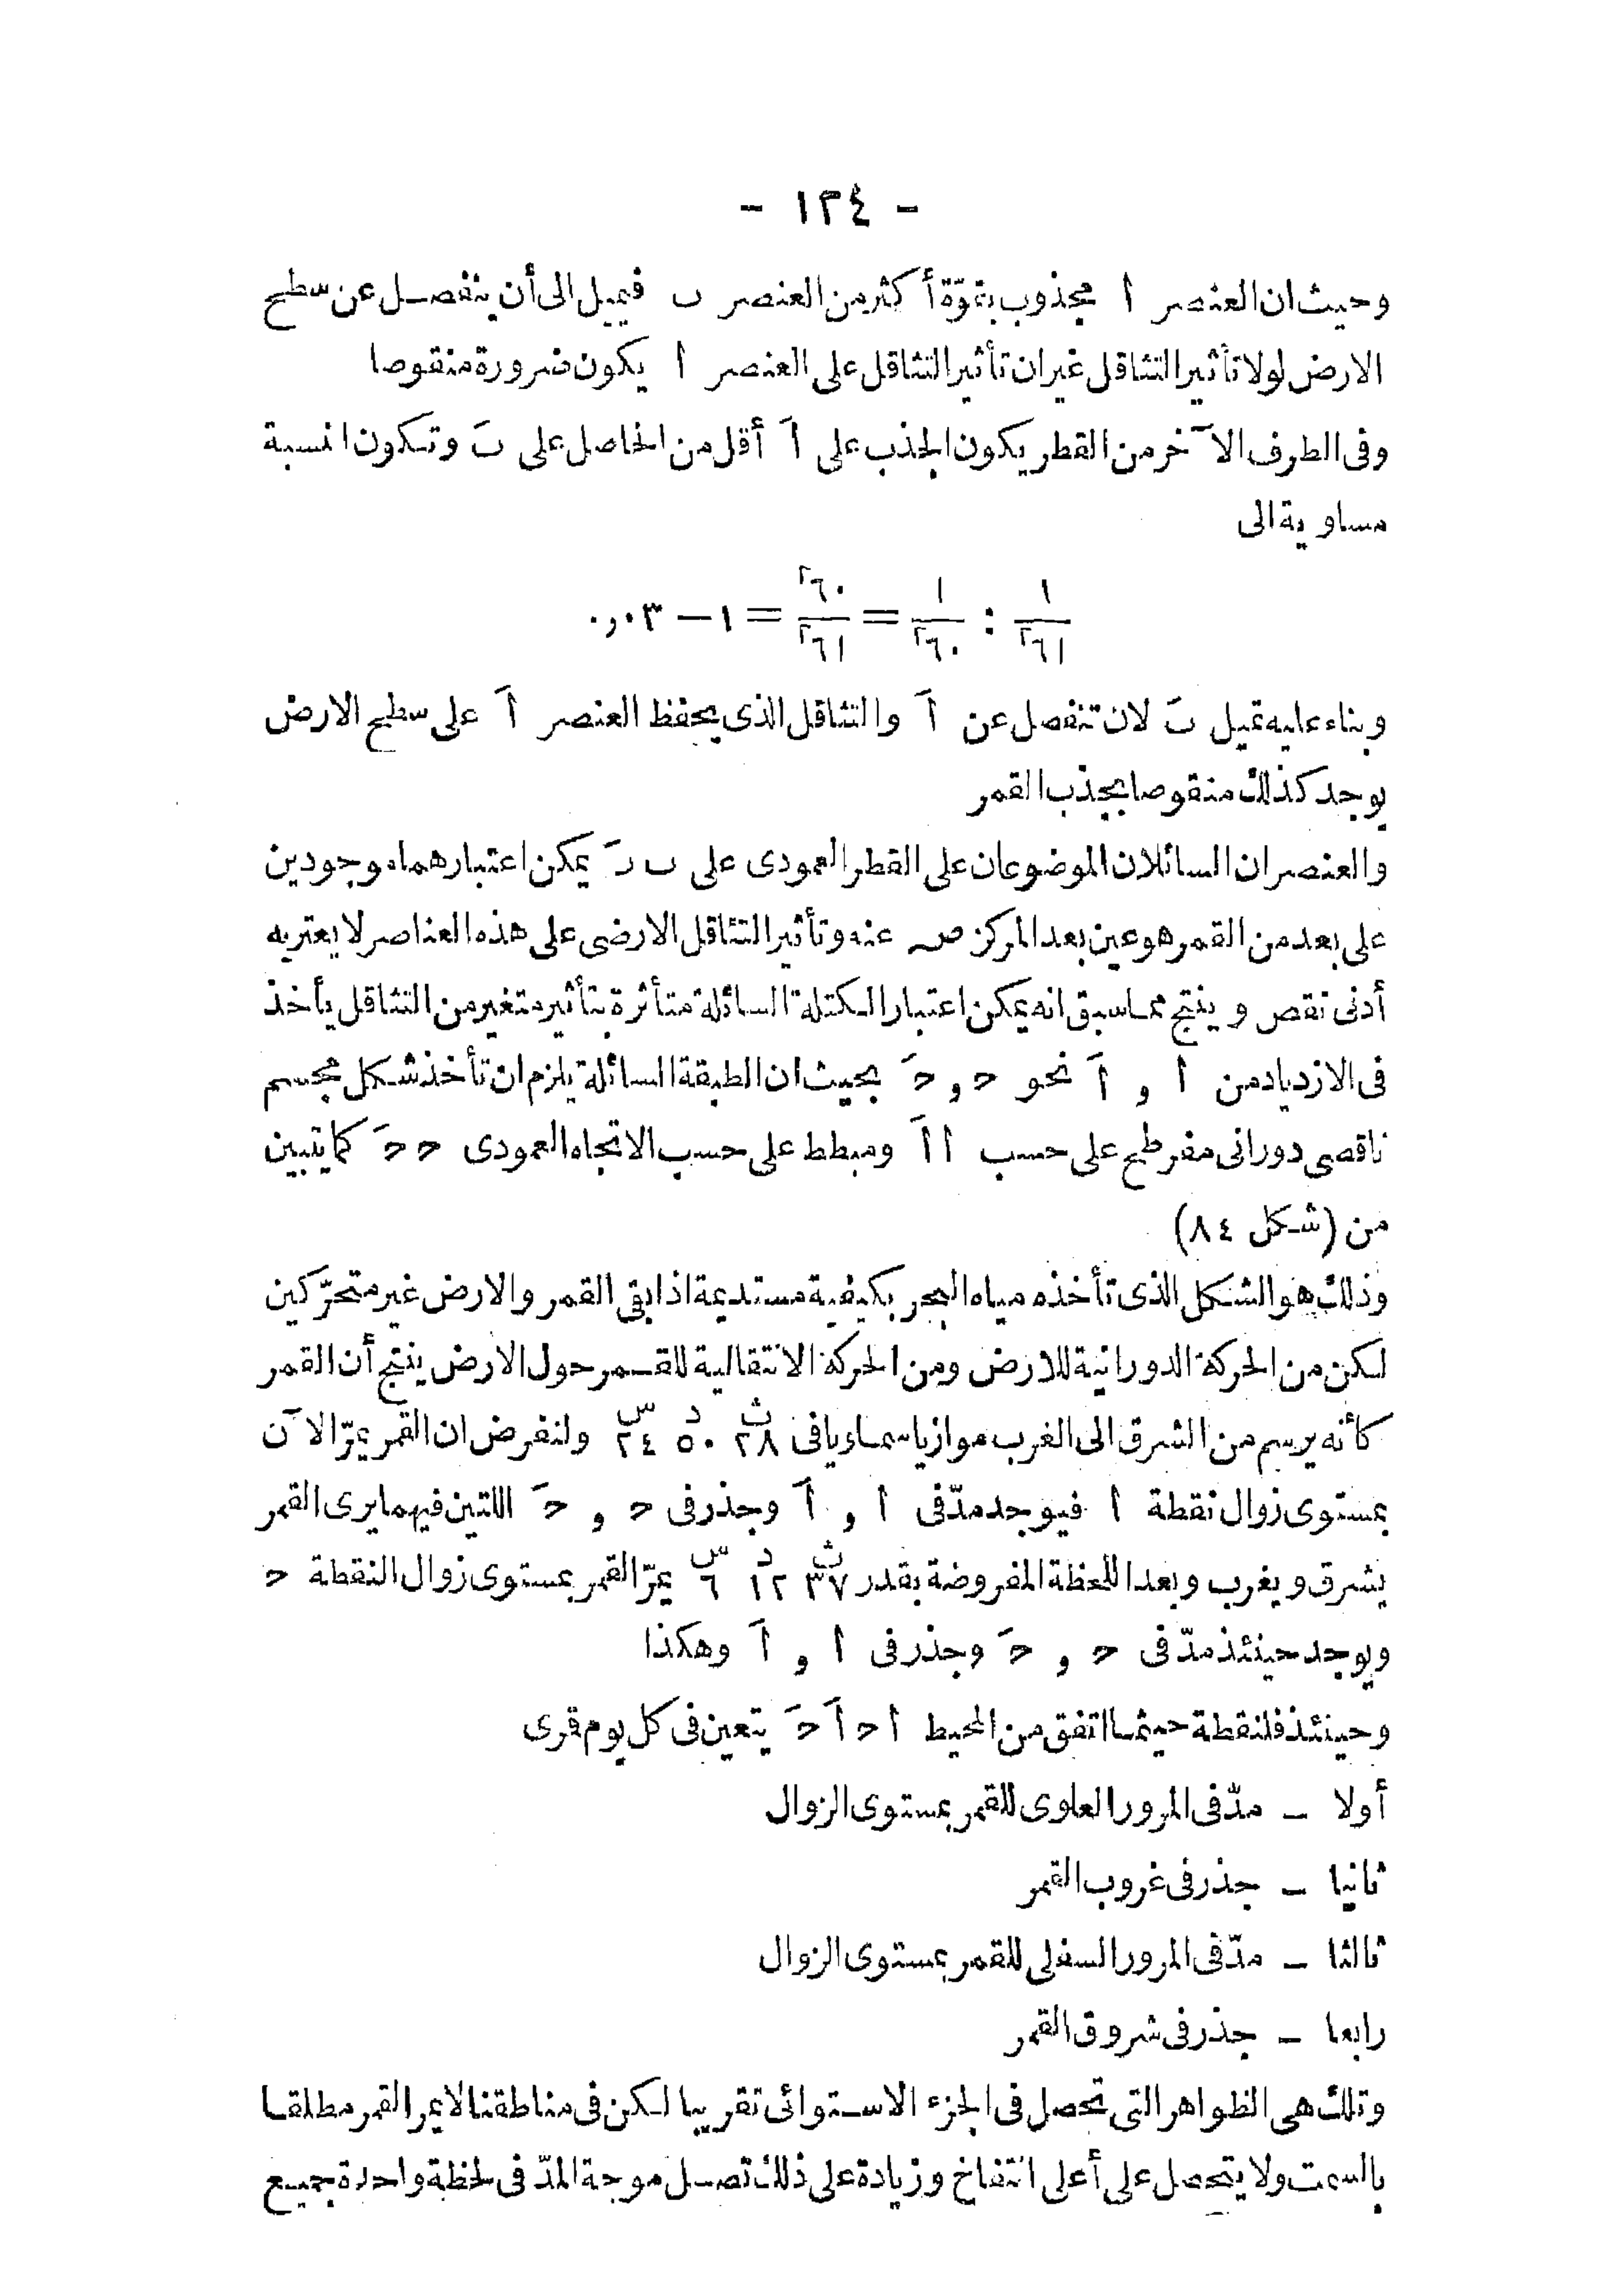 - ١٣٤ -
وحيث ان العنصر أ مجذوب بقوّة أكثر من العنصر ب فيميل الى أن ينفصل عن سطح
الارض لولا تأثير التثاقل غير ان تأثير التثاقل على العنصر أ يكون ضرورة منقوصا
وفى الطرف الآخر من القطر يكون الجذب على أَ أقل من الحاصل على بَ وتكون النسبة
مساوية الى
١/٦١٢ : ١/٦٠٢ = ٦٠٢/٦١٢ = ١ — ٠,٠٣
وبناء عليه تميل بَ لان تنفصل عن أَ والتثاقل الذى يحفظ العنصر أَ على سطح الارض
يوجد كذلك منقوصا بجذب القمر
والعنصران السائلان الموضوعان على القطر العمودى على ب بَ يمكن اعتبارهما موجودين
على بعد من القمر هو عين بعد المركز صہ عنه وتأثير التثاقل الارضى على هذه العناصر لا يعتريه
أدنى نقص وينتج مما سبق انه يمكن اعتبار الكتلة السائلة متأثرة بتأثير متغير من التثاقل يأخذ
فى الازدياد من أ و أَ نحو ح و حَ بحيث ان الطبقة السائلة يلزم ان تأخذ شكل مجسم
ناقصى دورانى مفرطح على حسب أ أَ ومبطط على حسب الاتجاه العمودى ح حَ كما يتبين
من (شكل ٨٤)
وذلك هو الشكل الذى تأخذه مياه البحر بكيفية مستديمة اذا بقى القمر والارض غير متحرّكين
لكن من الحركة الدورانية للارض ومن الحركة الانتقالية للقمر حول الارض ينتج أن القمر
كأنه يرسم من الشرق الى الغرب موازيا سماويا فى ٢٨ث ٥٠د ٢٤س ولنفرض ان القمر يمرّ الآن
بمستوى زوال نقطة أ فيوجد مدّ فى أ و أَ وجذر فى ح و حَ اللتين فيهما يرى القمر
يشرق ويغرب وبعد اللحظة المفروضة بقدر ٣٧ث ١٢د ٦س يمرّ القمر بمستوى زوال النقطة ح
ويوجد حينئذ مدّ فى ح و حَ وجذر فى أ و أَ وهكذا
وحينئذ فلنقطة حيثما اتفق من المحيط أ ح أَ حَ يتعين فى كل يوم قمرى
أولا — مدّ فى المرور العلوى للقمر بمستوى الزوال
ثانيا — جذر فى غروب القمر
ثالثا — مدّ فى المرور السفلى للقمر بمستوى الزوال
رابعا — جذر فى شروق القمر
وتلك هى الظواهر التى تحصل فى الجزء الاستوائى تقريبا لكن فى مناطقنا لا يمر القمر مطلقا
بالسمت ولا يتحصل على أعلى انتفاخ وزيادة على ذلك تصل موجة المدّ فى لحظة واحدة بجميع